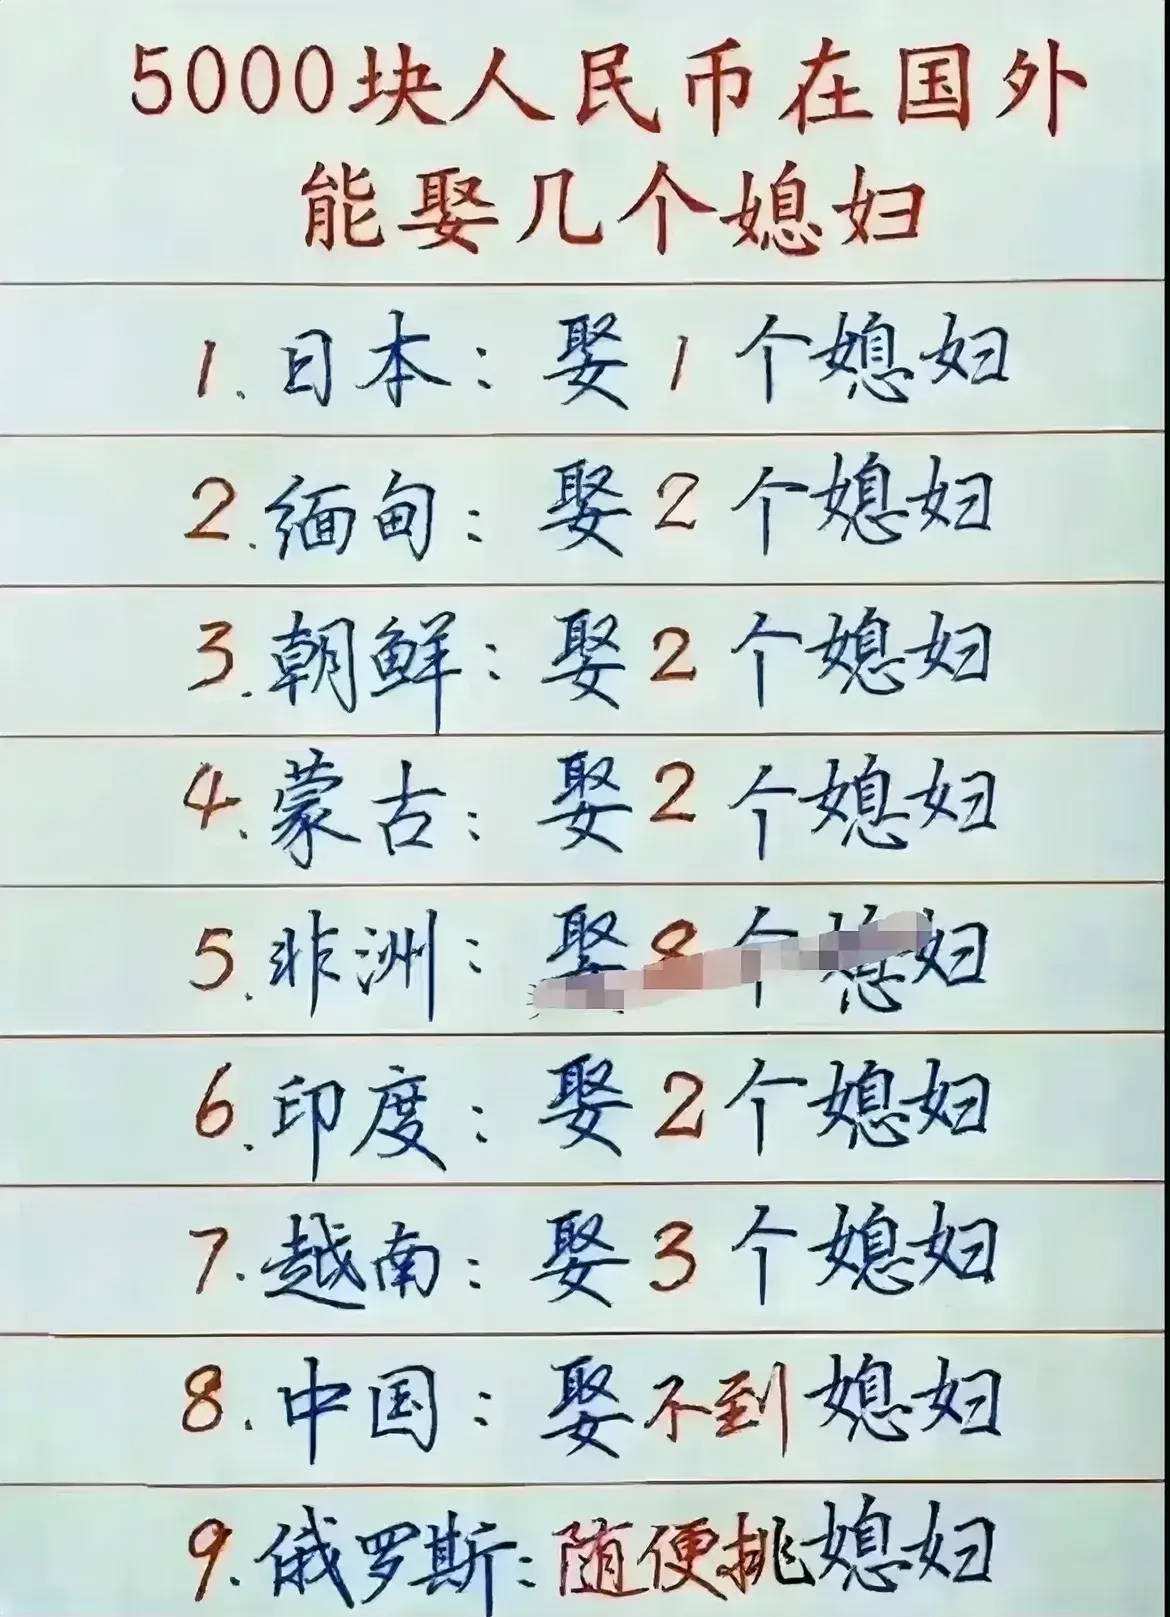 5000块人民币在国外
能娶几个媳妇
1.日本：娶1个媳妇
2.缅甸：娶2个媳妇
3.朝鲜：娶2个媳妇
4.蒙古：娶2个媳妇
5.非洲：娶8个媳妇
6.印度：娶2个媳妇
7.越南：娶3个媳妇
8.中国：娶不到媳妇
9.俄罗斯：随便挑媳妇